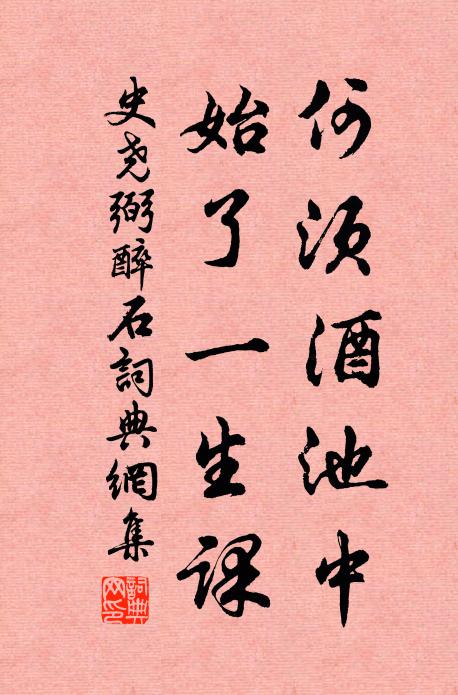 何须酒池中
始了一生课
史尧弼醉石詞典網集
詞典網印